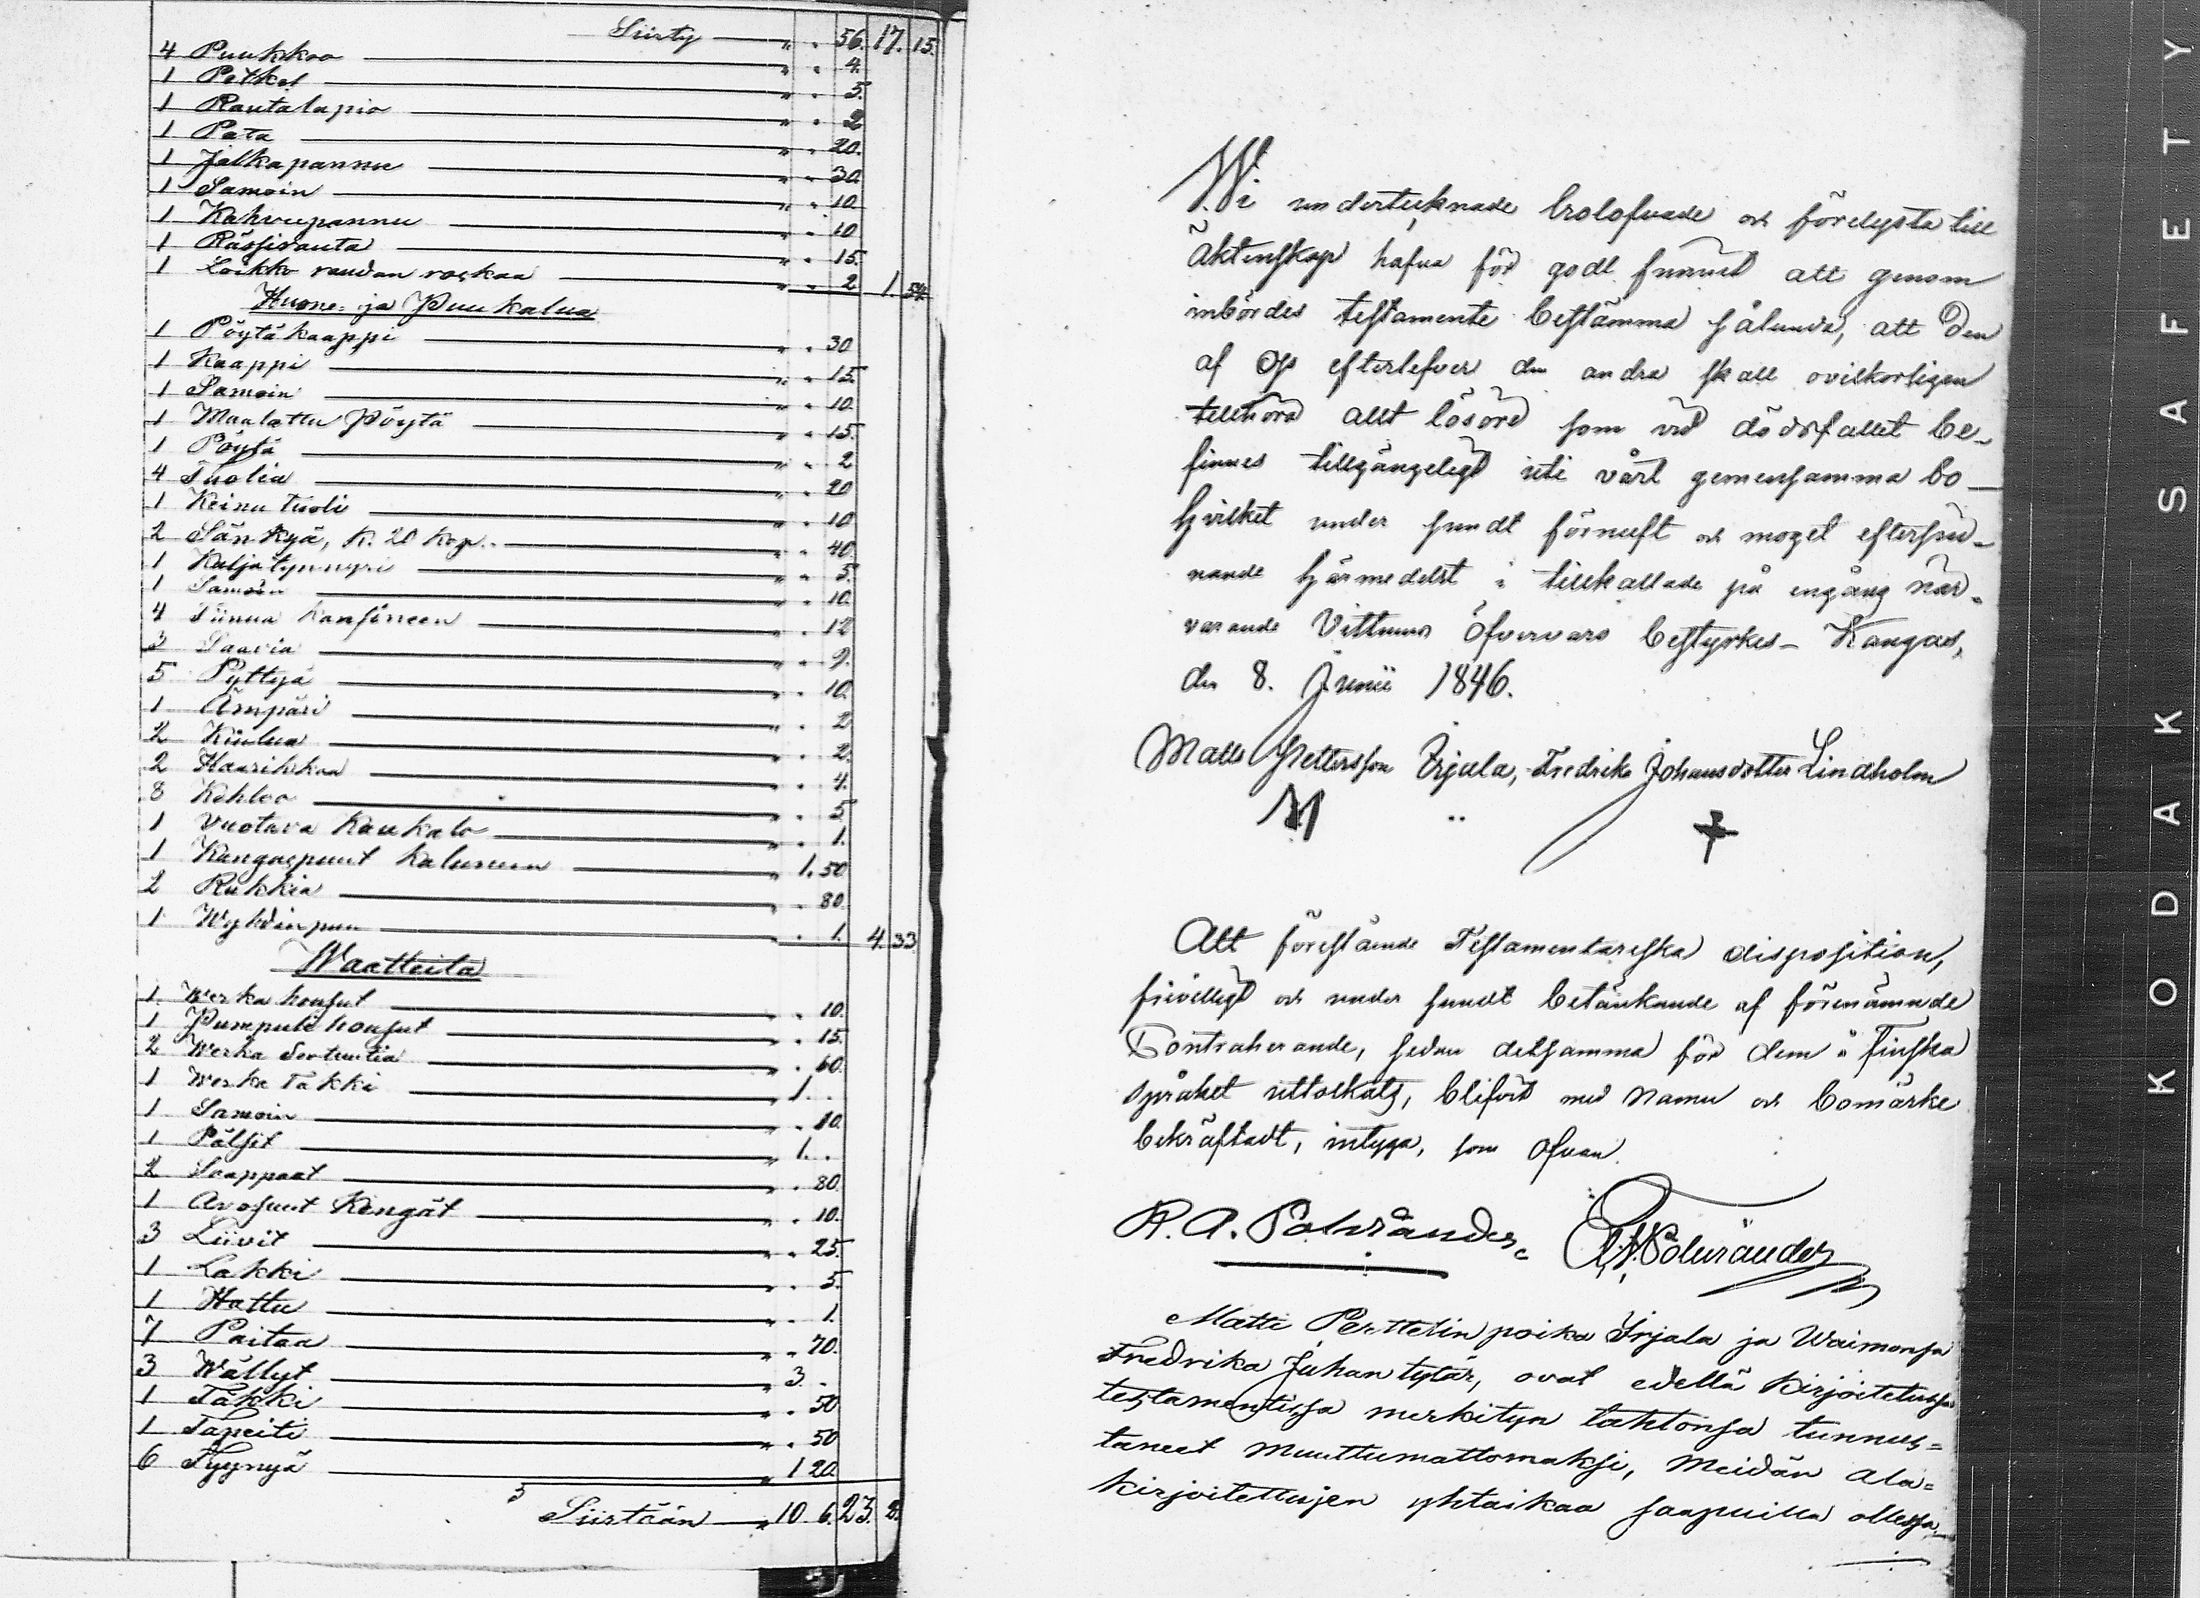 Siirty " " 56. 17. 15.
4 Puukkoo " " 4.
1 Petkel " " 5.
1 Rautalapio " " 2
1 Pata " " 20.
1 Jalkapannu " " 30.
1 Samoin " " 10
1 Kahvipannu " " 10
1 Rässirauta " " 15.
1 Loikko raudan roskaa " " 2 1. 54.
Huone- ja Puukalua
1 Pöytäkaappi " " 30
1 Kaappi " " 15.
1 Samoin " " 10.
1 Maalattu Pöytä " " 15.
1 Pöytä " " 2
4 Tuolia " " 20
1 Keinutuoli " " 10
2 Sänkyä, K. 20 Kop. " " 40.
1 Kaljatynnyri " " 5.
1 Samoin " " 10.
4 Tiinua Kansineen " " 12
3 Saavia " " 9.
5 Pyttyä " " 10.
1 Ämpäri " " 2
2 Kiulua " " 2.
2 Haarikkaa " " 4.
8 Kehloo " " 5
1 Vuotava Kaukalo " " 1.
1 Kangaspuut Kaluneen " 1. 50
2 Rukkia " " 80.
1 Wyhdinpuu " " 1. 4. 33
Waatteita
1 Werka housut " " 10.
1 Pumpuli housut " " 15.
2 Werka Sortuutia " " 60.
1 Werka Takki " 1. "
1 Samoin " " 10.
1 Pälsit " 1. "
2 Saappaat " " 80.
1 Avosuut Kengät " " 10.
3 Liivit " " 25.
1 Lakki " " 5.
1 Hattu " " 1.
7 Paitaa " " 70.
3 Wällyt " 3. "
1 Täkki " " 50
1 Tapeiti " " 50
6 Tyynyä " 1 20.
Siirtään " 10 6. 23. 2.
Wi undertecknade trolofvade och förelysta till
äktenskap hafva för godt funnit att genom
inbördes testamente bestämma sålunda, att den
af oss efterlefver den andra skall ovilkorligen
tillhöra allt lösöre som vid dödsfallet be-
finnes tillgängeligt uti vårt gemensamma bo –
hvilket under sundt förnuft och moget efterfin-
nande härmedelst i tillkallade på engång när-
varande Vittnens öfvervaro bestyrkes – Kangas,
den 8. Junii 1846.
Matts Pettersson Yrjala, Fredrika Johansdotter Lindholm
M " +
Att förestående Testamentariska disposition,
frivilligt och under sundt betänkande af förenämnde
Contraherande, sedan detsamma för dem i Finska
språket uttolkats, blifvit med namn och bomärke
bekräftadt, intyga, som ofvan.
K. A. Polviander. A. F. Polviander
Matti Perttelin poika Yrjala ja Waimonsa
Fredrika Juhan tytär, ovat edellä kirjoitetussa
testamentissa merkityn tahtonsa tunnus=
taneet muuttumattomaksi, meidän ala=
kirjoitettujen yhtaikaa saapuilla ollessa.